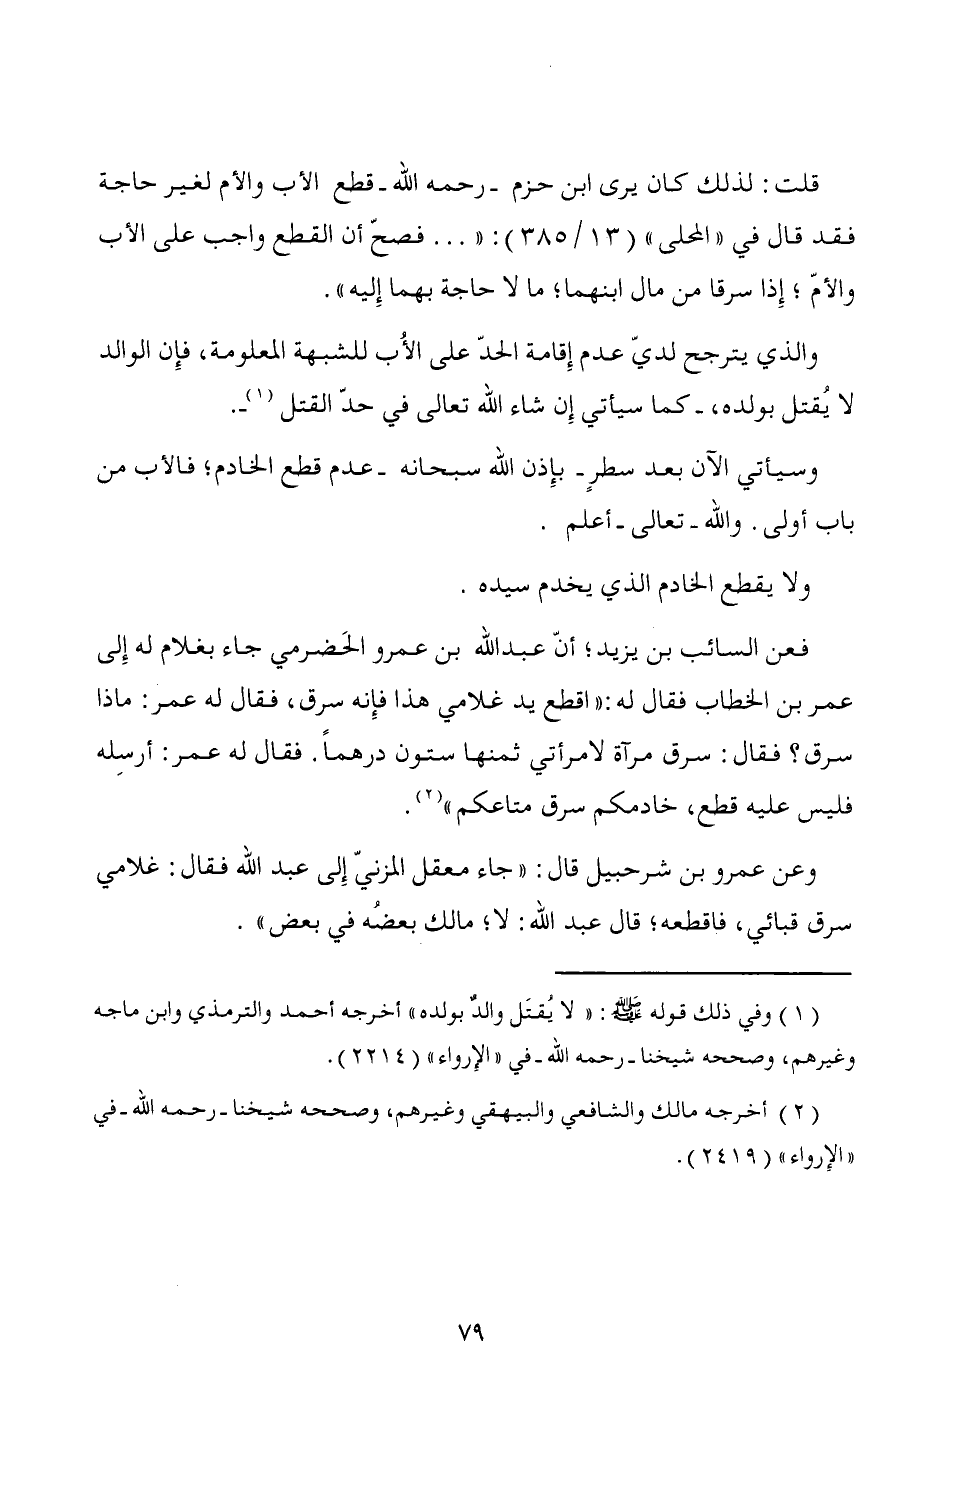 قلت: لذلك كان يرى ابن حزم - رحمه الله - قطع الأب والأم لغير حاجة
فقد قال في «المحلى» (١٣/ ٣٨٥): « ... فصحّ أن القطع واجب على الأب
والأمّ؛ إذا سرقا من مال ابنهما؛ ما لا حاجة بهما إليه».
والذي يترجح لديّ عدم إقامة الحدّ على الأُب للشبهة المعلومة، فإن الوالد
لا يُقتل بولده، - كما سيأتي إن شاء الله تعالى في حدّ القتل (١)-.
وسيأتي الآن بعد سطرٍ - بإذن الله سبحانه - عدم قطع الخادم؛ فالأب من
باب أولى. والله - تعالى - أعلم .
ولا يقطع الخادم الذي يخدم سيده .
فعن السائب بن يزيد؛ أنّ عبدالله بن عمرو الحَضرمي جاء بغلام له إلى
عمر بن الخطاب فقال له: «اقطع يد غلامي هذا فإنه سرق، فقال له عمر: ماذا
سرق؟ فقال: سرق مرآة لامرأتي ثمنها ستون درهماً. فقال له عمر: أرسِله
فليس عليه قطع، خادمكم سرق متاعكم»(٢).
وعن عمرو بن شرحبيل قال: «جاء معقل المزنيّ إلى عبد الله فقال: غلامي
سرق قبائي، فاقطعه؛ قال عبد الله: لا؛ مالك بعضُه في بعض» .
(١) وفي ذلك قوله ﷺ: « لا يُقتَل والدٌ بولده» أخرجه أحمد والترمذي وابن ماجه
وغيرهم، وصححه شيخنا - رحمه الله - في «الإرواء» (٢٢١٤).
(٢) أخرجه مالك والشافعي والبيهقي وغيرهم، وصححه شيخنا - رحمه الله - في
«الإرواء» (٢٤١٩).
٧٩